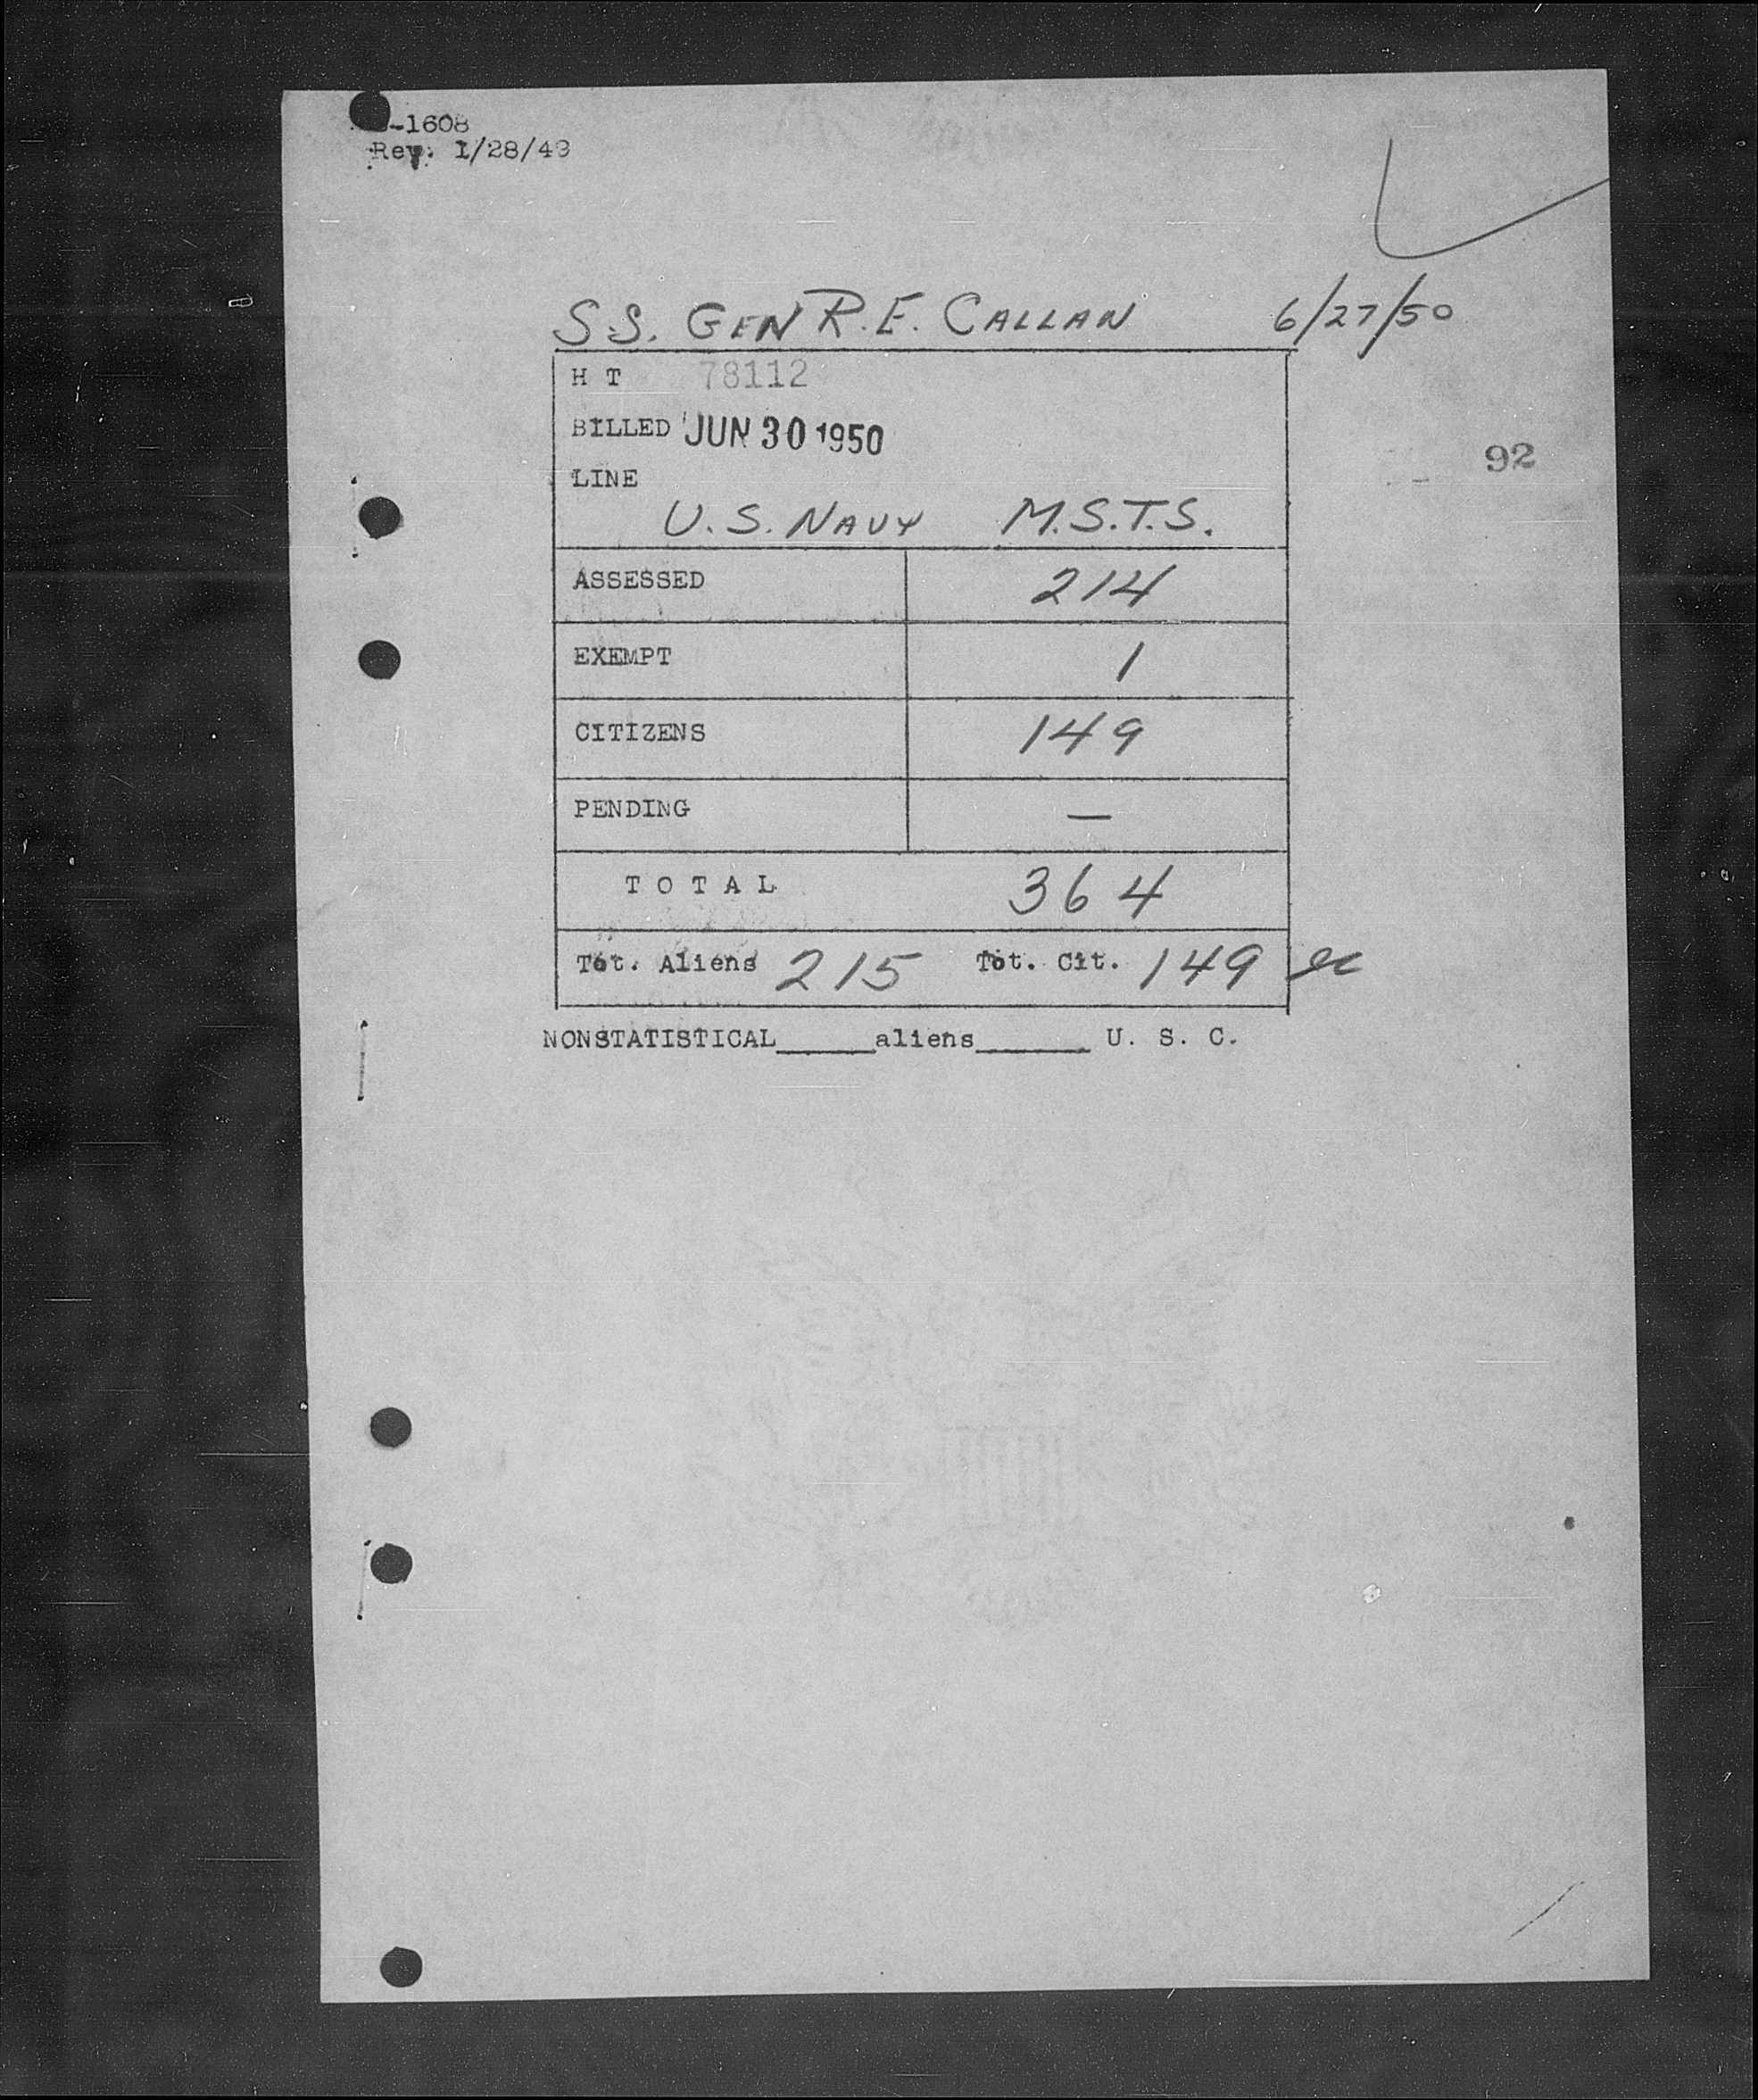 -1608
Rev. 1/28/49
S.S. GEN R.E. CALLAN 6/27/50
H T 78112
BILLED JUN 30 1950
92
LINE
U.S. NAVY M.S.T.S.
ASSESSED 214
EXEMPT 1
CITIZENS 149
PENDING —
T O T A L 364
Tot. Aliens 215 Tot. Cit. 149
NONSTATISTICAL_____aliens______ U. S. C.